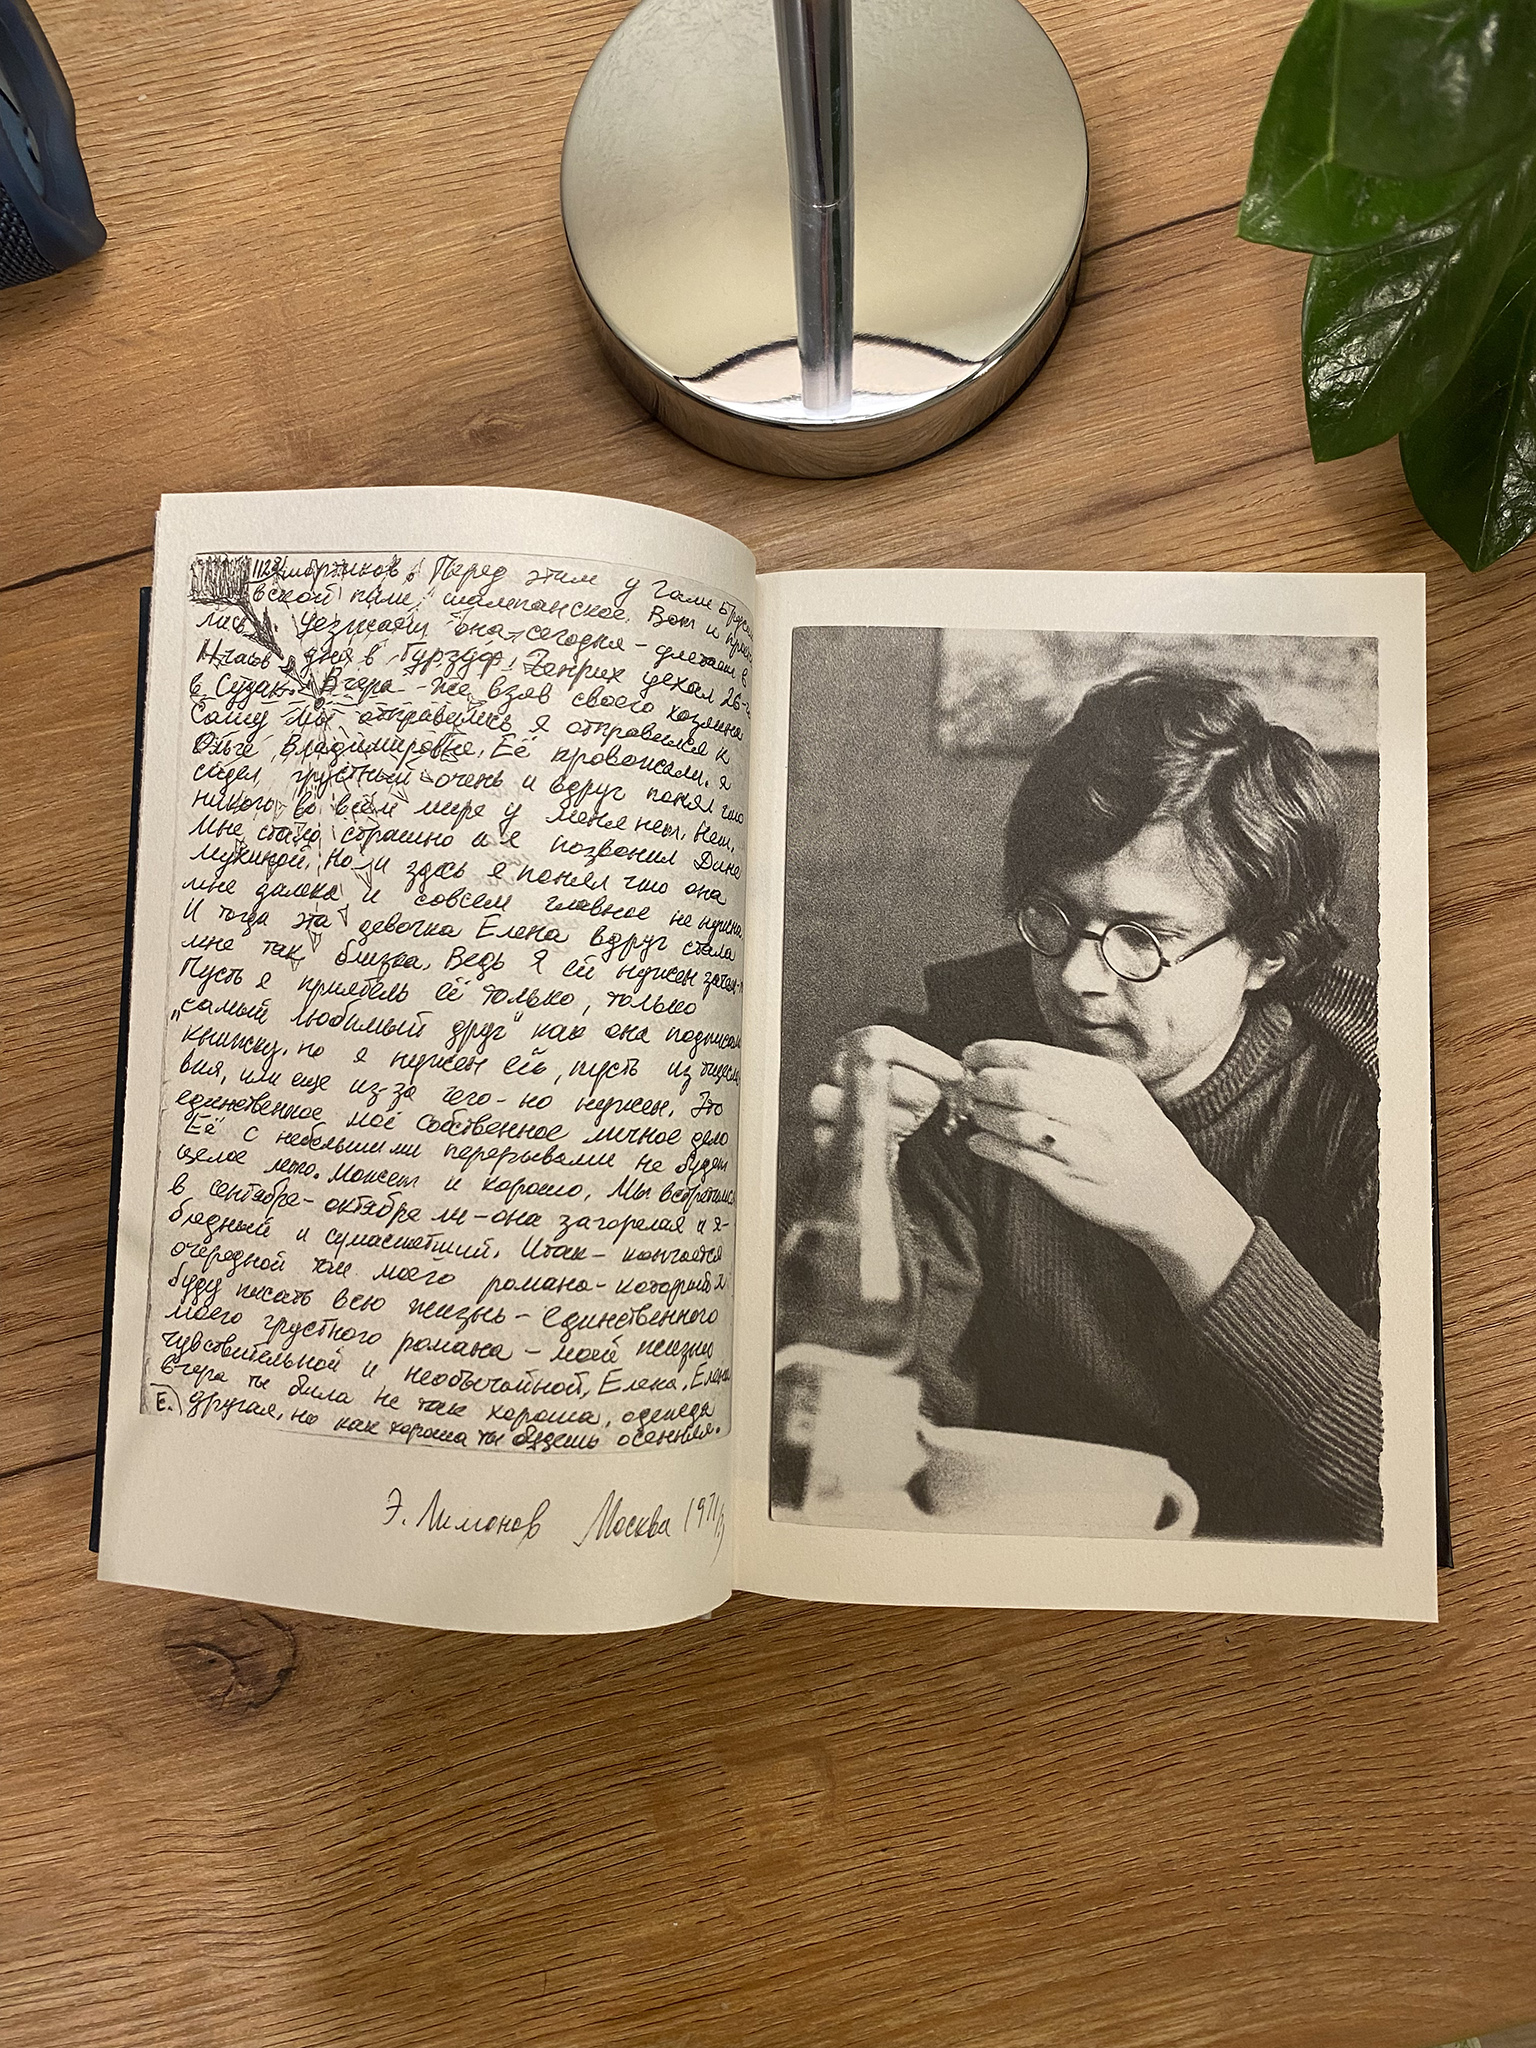 Перед этим у Гали Бродс
вской пили шампанское. Вот и прост
лись. Уезжает она сегодня - улетает в
4 часов дня в Гурзуф, Генрих уехал 26-го
в Судак. Вчера - же взяв своего хозяина
Сашу мы отправились я отправился к
Ольге Владимировне. Её провожали. Я
сидел грустный очень и вдруг понял что
никого во всём мире у меня нет. Нет.
Мне стало страшно и я позвонил Дине
Мухиной. Но и здесь я понял что она
мне далека и совсем главное не нужна.
И тогда эта девочка Елена вдруг стала
мне так близка. Ведь я ей нужен зачем-
Пусть я приятель её только, только
"самый любимый друг" как она подписала
книжку. но я нужен ей, пусть из тщесла
вия, или еще из-за чего-но нужен. Это
единственное моё собственное личное дело
Её с небольшими перерывами не будет
целое лето. Может и хорошо. Мы встретимся
в сентябре-октябре ли-она загорелая и я-
бледный и сумасшедший. Итак - кончается
очередной том моего романа-который я
буду писать всю жизнь - единственного
моего грустного романа - моей жизни
чувствительной и необычайной, Елена, Елена
Вчера ты была не так хороша, одежда
Е. другая, но как хороша ты будешь осенняя.
Э. Лимонов Москва 1971